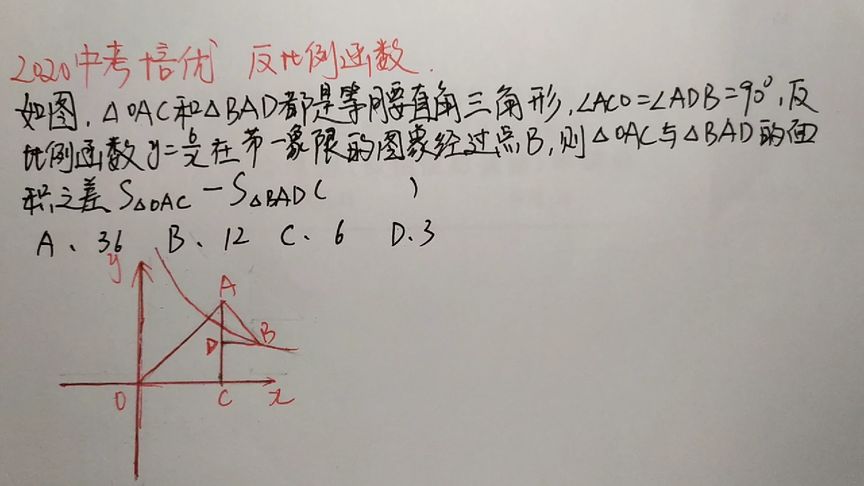 2020中考培优 反比例函数.
如图,△OAC和△BAD都是等腰直角三角形,∠ACO=∠ADB=90°,反
比例函数y=6/x在第一象限的图象经过点B,则△OAC与△BAD的面
积之差S△OAC-S△BAD( )
A、36 B、12 C、6 D.3
y
A
D B
O C x